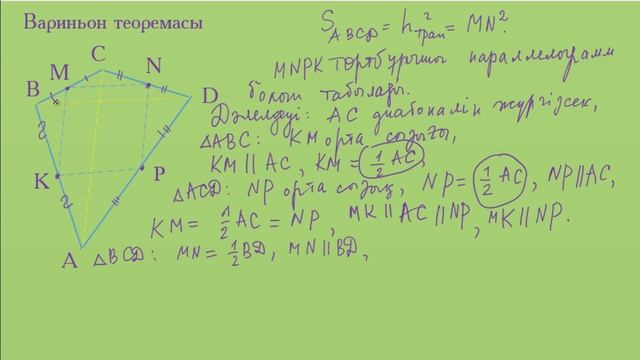 Вариньон теоремасы
S_ABCD = h²_трап = MN².
MNPK төртбұрышы параллелограмм
болып табылады.
Дәлелдеуі: AC диагоналін жүргізсек,
△ABC: KM орта сызығы,
KM || AC, KM = 1/2 AC,
△ACD: NP орта сызық, NP = 1/2 AC, NP || AC,
KM = 1/2 AC = NP, MK || AC || NP, MK || NP.
△BCD: MN = 1/2 BD, MN || BD,
C
M
N
B
D
K
P
A